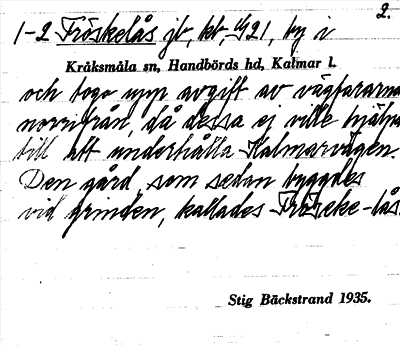 2.
1-2 Fröskelås jb, kb, by i
Kråksmåla sn, Handbörds hd, Kalmar l.
och togo upp avgift av vägfararna
norrifrån, då dessa ej ville hjälpa
till att underhålla Kalmarvägen.
Den gård, som sedan byggdes
vid grinden, kallades Fröseke-lås.
Stig Bäckstrand 1935.